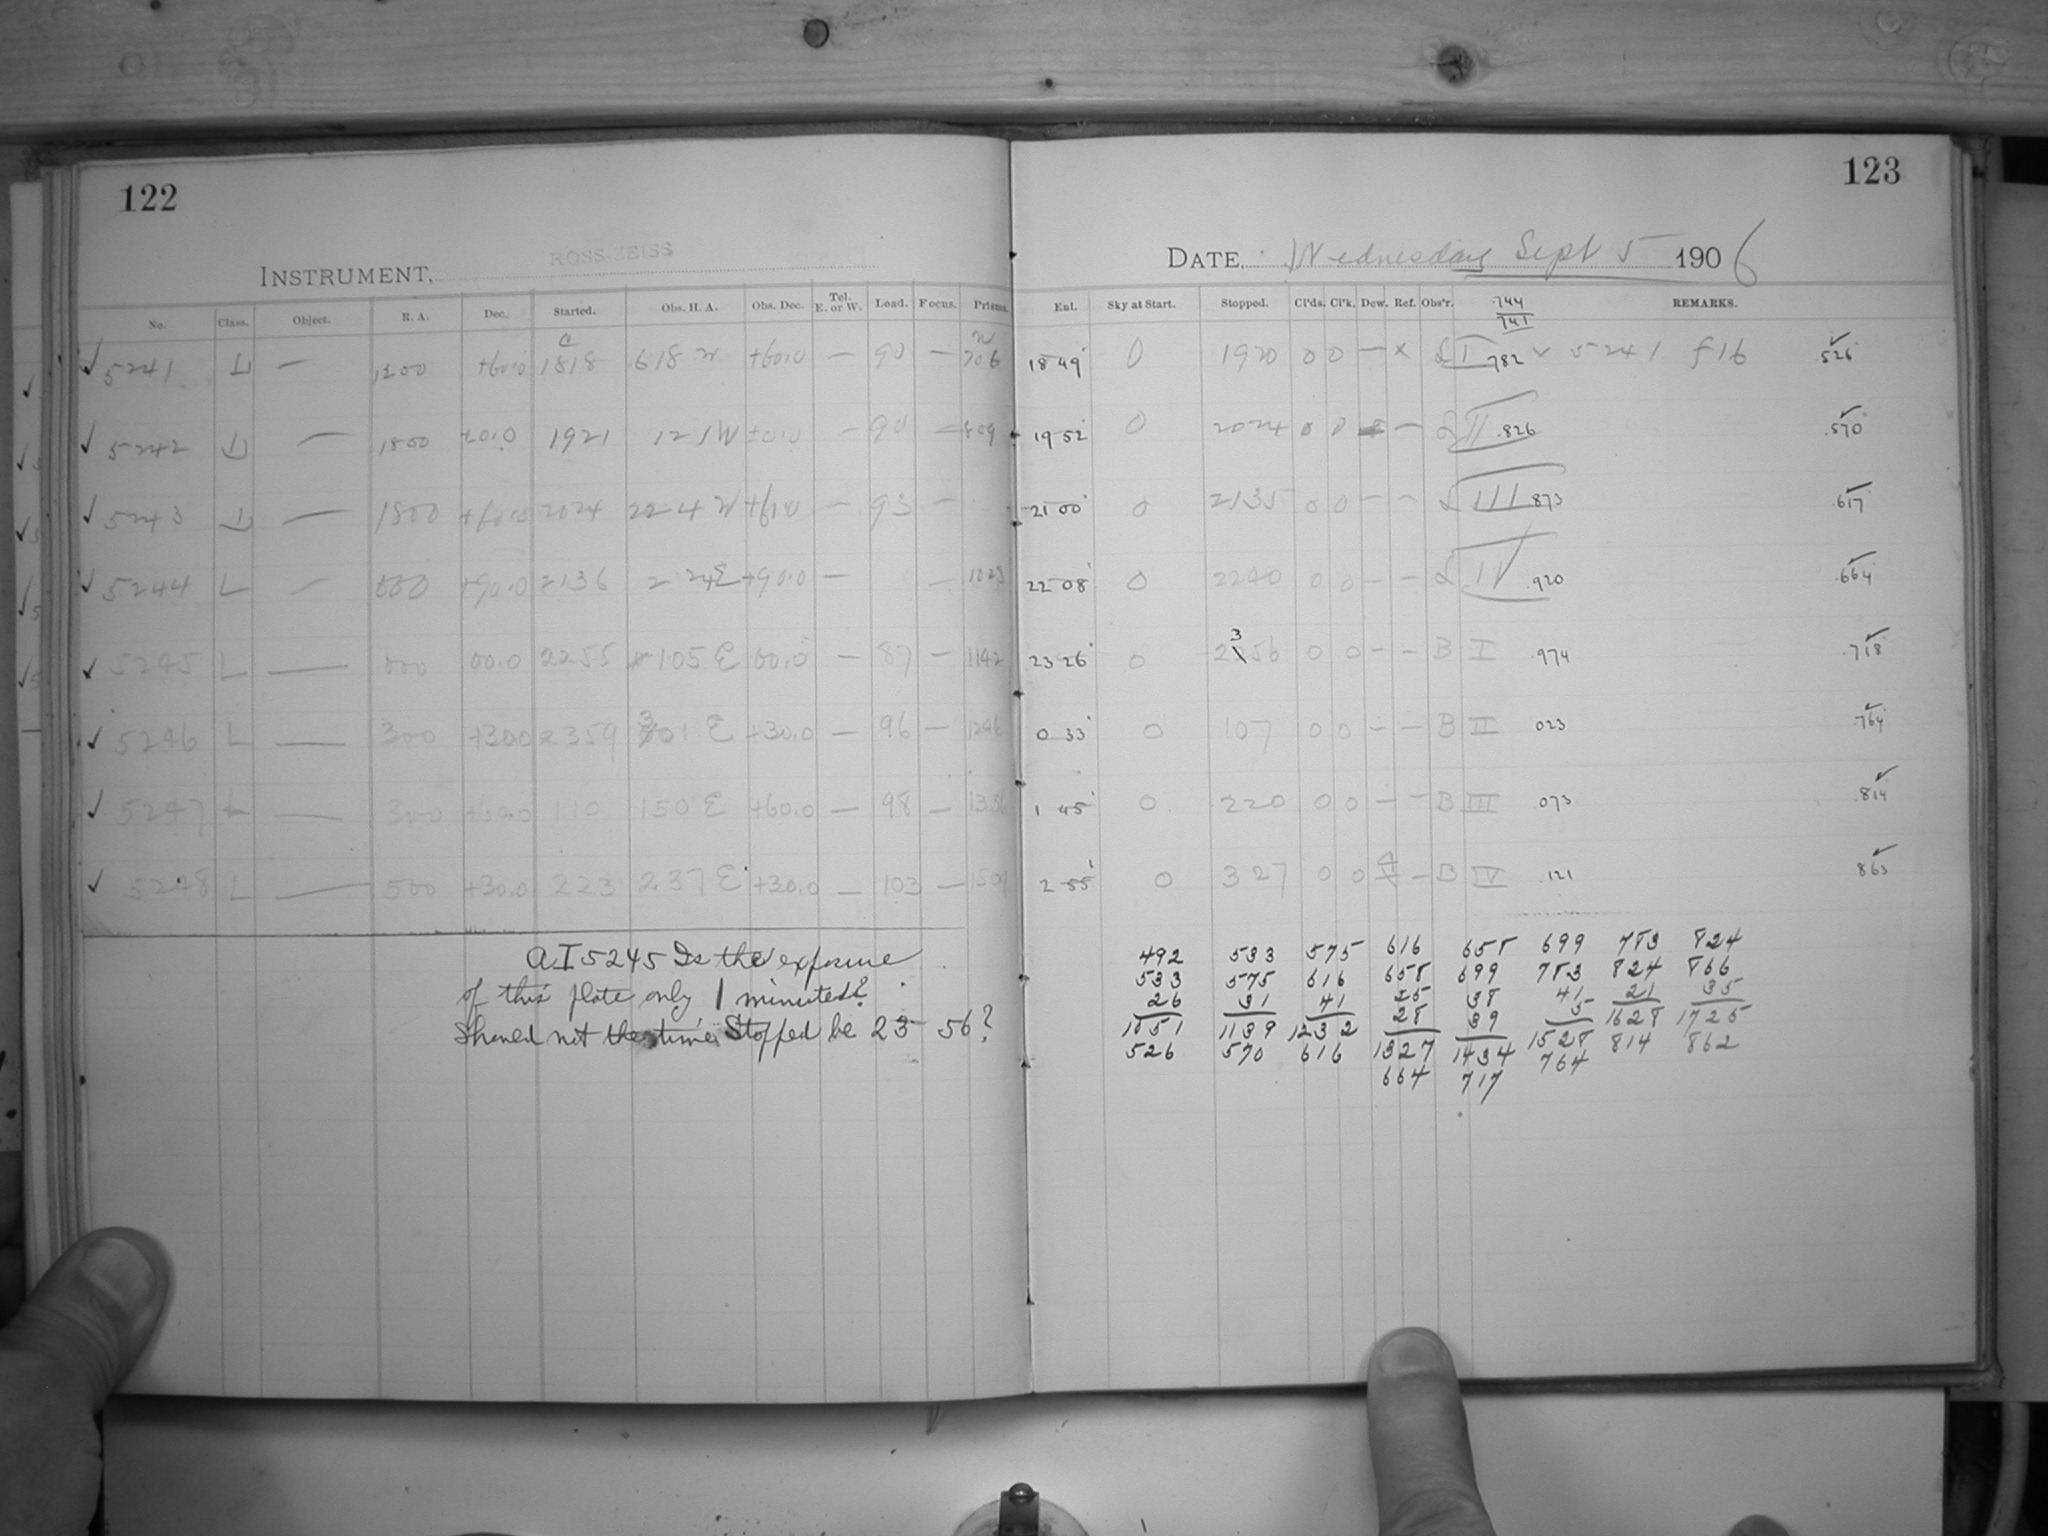 122
123
ROSS-ZEISS
INSTRUMENT,
DATE, Wednesday Sept 5 1906
No. Class. Object. R. A. Dec. Started. Obs. H. A. Obs. Dec. Tel. E. or W. Load. Focus. Prisms. Enl. Sky at Start. Stopped. Cl'ds. Cl'k. Dew. Ref. Obs'r. .744 741 REMARKS.
✓ 5241 L — 1200 +60.0 1818 618 W +60.0 — 90 — 706 18 49 0 1920 0 0 — × I 782 × 5241 f16 .526 ✓
✓ 5242 L — 1800 +0.0 1921 121 W +0.0 — 90 — 809 19 52 0 2024 0 0 — II .826 .570 ✓
✓ 5243 L — 1800 2024 — 93 — 21 00 0 2135 0 0 — — III 873 .617 ✓
✓ 5244 L — 000 +90.0 2136 2 24 E +90.0 — — 22 08 0 2240 0 0 — — IV .920 .664 ✓
✓ 5245 L — 000 00.0 2255 105 E 00.0 — 87 — 1142 23 26 0 2356 0 0 — — B I .974 .718 ✓
✓ 5246 L — 300 +30.0 2359 301 E +30.0 — 96 — 1246 0 33 0 107 0 0 — — B II 023 .764 ✓
✓ 5247 L — 300 +60.0 110 150 E +60.0 — 98 — 1 45 0 220 0 0 — — B III 073 .814 ✓
✓ 5248 L — 500 +30.0 223 237 E +30.0 — 103 — 1509 2 55 0 327 0 0 — B IV .121 863 ✓
AI 5245 Is the exposure
of this plate only 1 minutes?
Should not the time Stopped be 23 56?
492 533 575 616 658 699 783 824
533 575 616 658 699 783 824 866
26 31 41 25 38 41 21 35
1051 1139 1232 28 39 5 1628 1725
526 570 616 1327 1434 1528 814 862
664 717 764